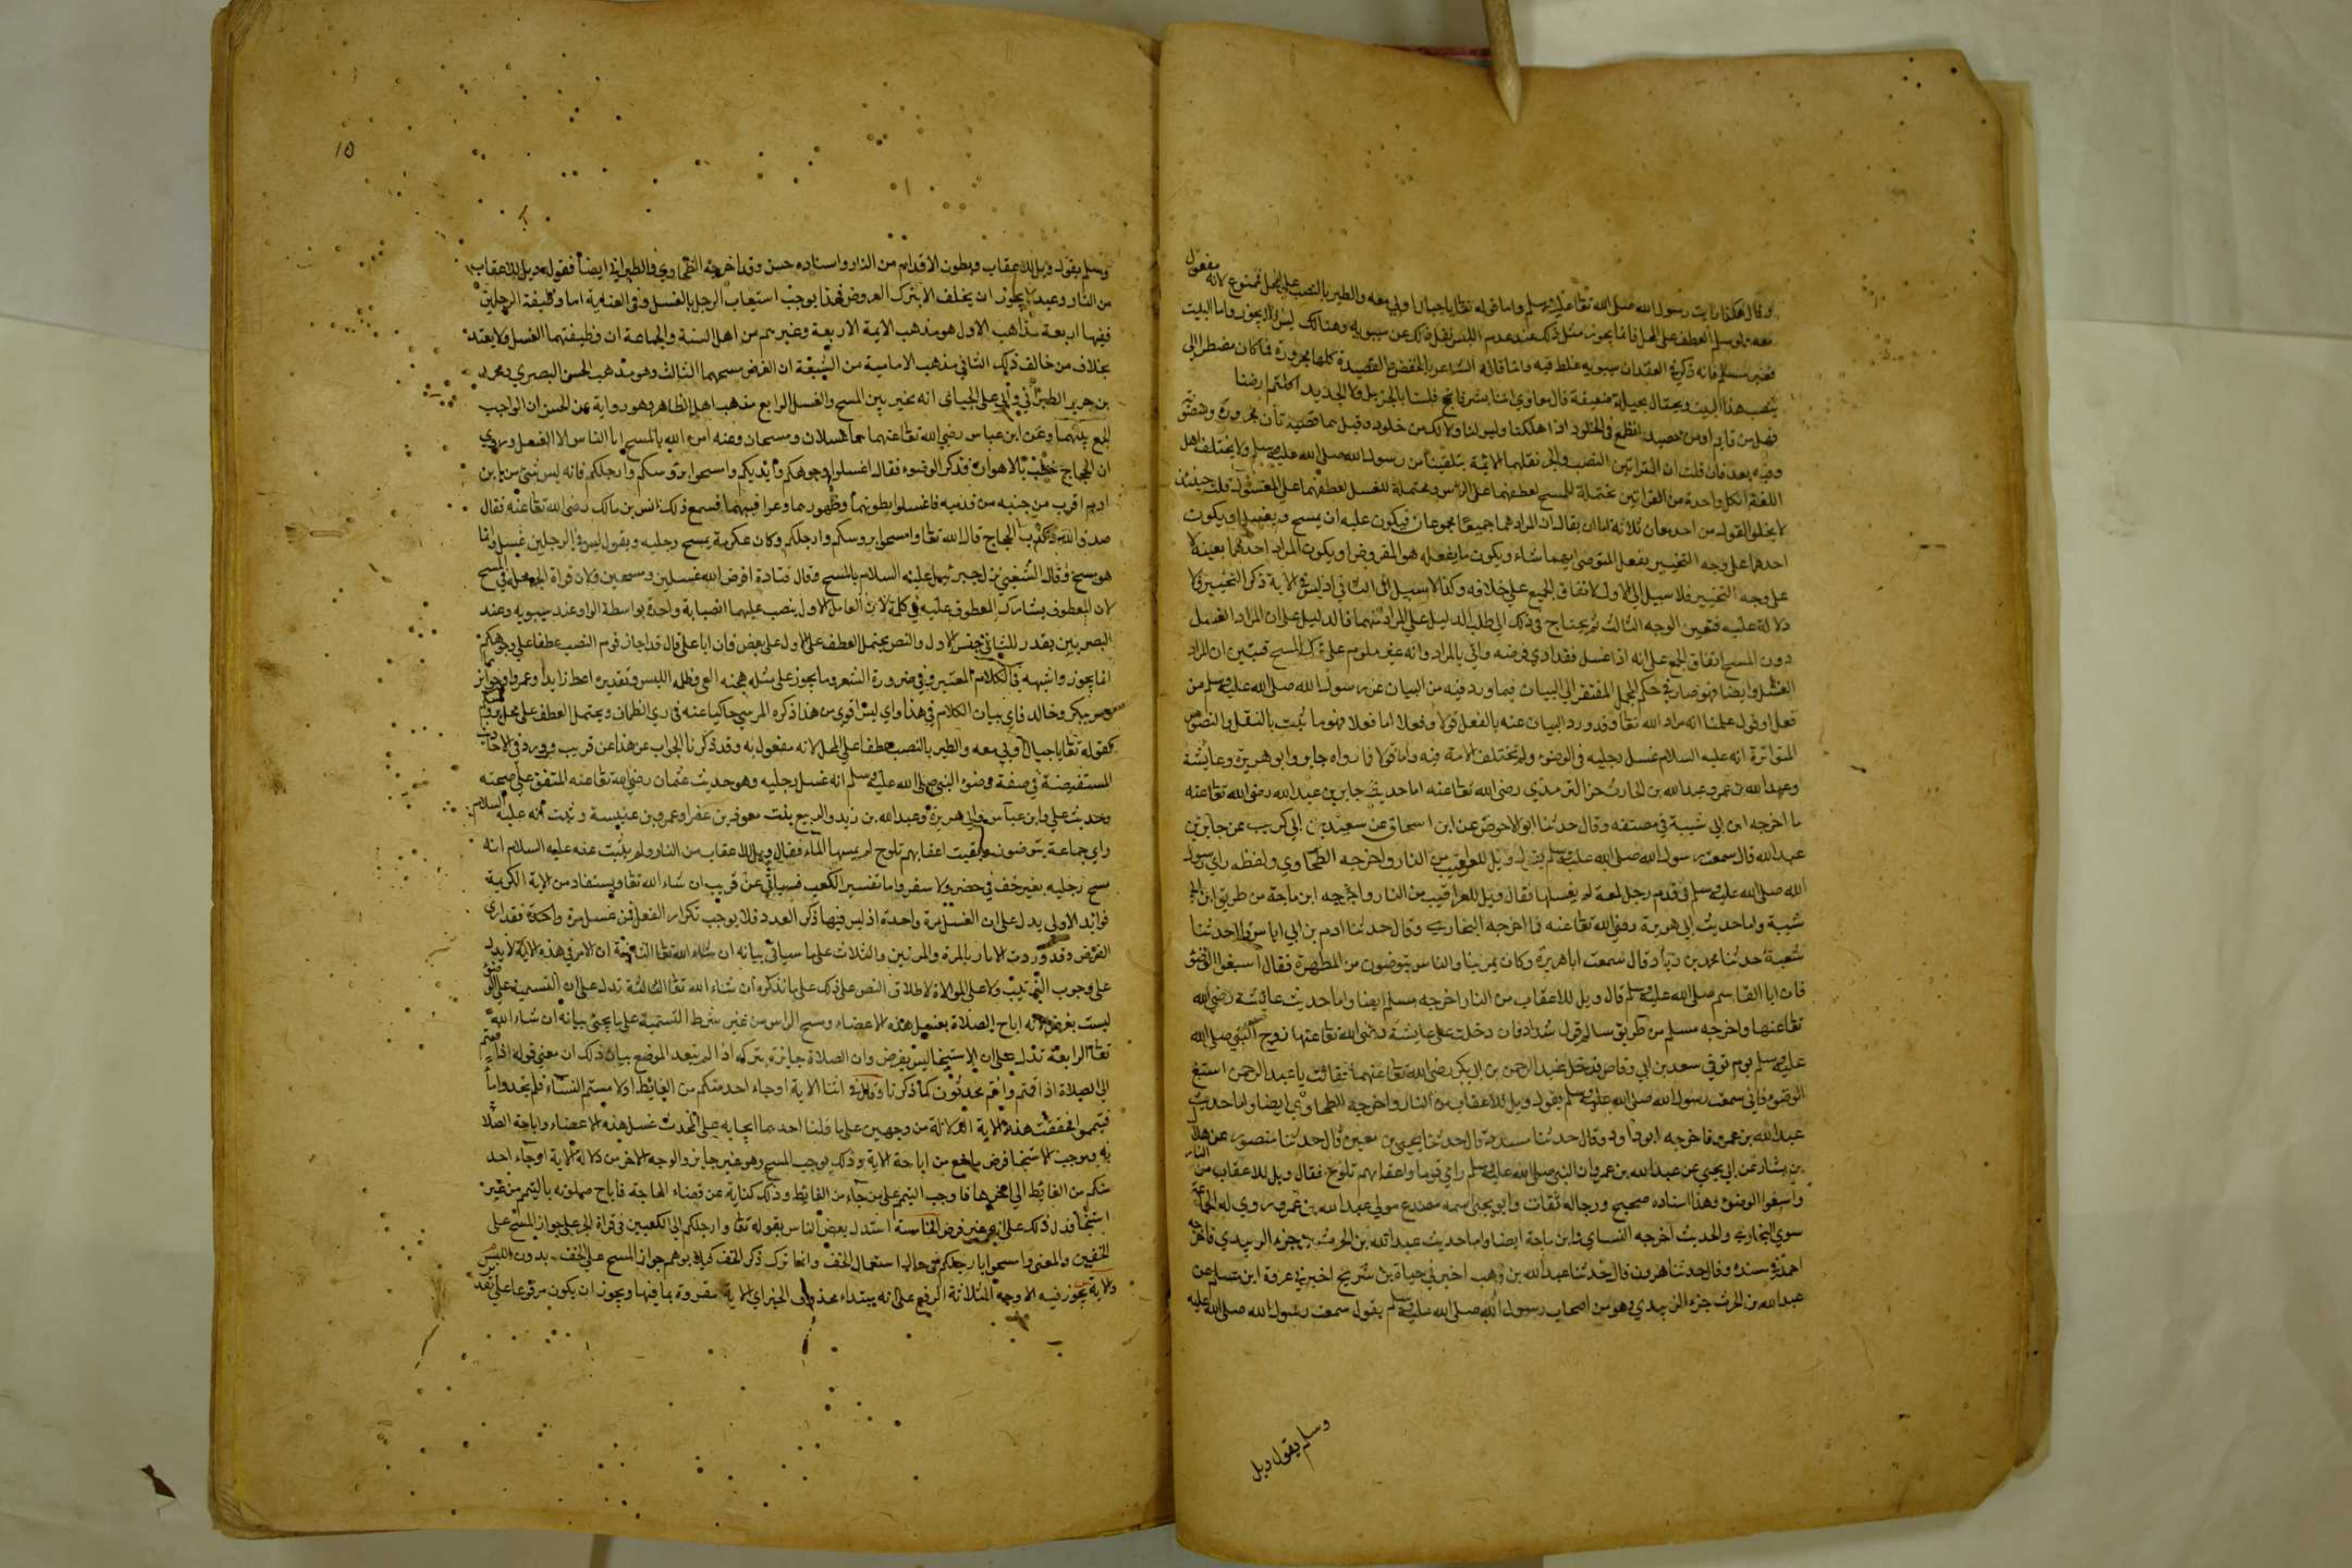 وقال هكذا رايت رسول الله صلى الله تعا عليه وسلم واما قوله تعا يا جبال اوبي معه والطير بالنصب على المحل فممنوع لانه مفعول
معه ولو سلم العطف على المحل فانما يجوز مثل ذلك عند عدم اللبس نقل ذلك عن سيبويه وهنالك ليس ولا يجوز واما البيت
فغير مسلم فانه ذكر في العقد ان سيبويه غلط فيه وانما قاله الشاعر بالخفض والقصيدة كلها مجرورة فما كان مضطرا الى
ينصب هذا البيت ويحتال بحيلة ضعيفة قال معاوي اننا بشر فاسجح فلسنا بالجبال ولا الحديد اكلتم ارضنا
فهل من قايم او من حصيد اتطمع في الخلود اذا هلكنا وليس لنا ولا لك من خلود وقيل هما قصيدتان مجرورة ومنصوبة
وفيه بعد فان قلت ان القراتين النصب والجر نقلهما الائمة تلقينا من رسول الله صلى الله عليه وسلم ولا يختلف اهل
اللغة ان كل واحدة من القراتين محتملة للمسح لعطفهما على الراس ومحتملة للغسل لعطفهما على المغسول قلت حينئذ
لا يخلو القول من احد معان ثلاثة اما ان يقال ان المراد هما جميعا مجموعان فيكون عليه ان يمسح ويغسل او يكون
احدهما على وجه التخيير يفعل المتوضي ايهما شاء ويكون ما يفعله هو المفروض او يكون المراد احدهما بعينه لا
على وجه التخيير فلا سبيل الى الاول لاتفاق الجميع على خلافه وكذا لا سبيل الى الثاني اذ ليس في الاية ذكر التخيير ولا
دلالة عليه فتعين الوجه الثالث ثم يحتاج في ذلك الى طلب الدليل على المراد منهما فالدليل على ان المراد الغسل
دون المسح اتفاق الجمع على انه اذا غسل فقد ادى فرضه واتى بالمراد وانه غير ملوم على ترك المسح فتبين ان المراد
الغسل وايضا فهو صار في حكم المجمل المفتقر الى البيان فيما ورد فيه من البيان عن رسول الله صلى الله عليه وسلم من
فعل او قول علمنا انه مراد الله تعا وقد ورد البيان عنه بالفعل قولا وفعلا اما فعلا فهو ما ثبت بالنقل والنصوص
المتواترة انه عليه السلام غسل رجليه في الوضوء ولم تختلف الامة فيه واما قولا فما رواه جابر وابو هريرة وعايشة
وعبد الله بن عمر وعبد الله بن الحارث جزء الزبيدي رضى الله تعا عنه اما حديث جابر بن عبد الله رضى الله تعا عنه
ما اخرجه ابن ابي شيبة في مصنفه وقال حدثنا ابو الاحوص عن ابن اسحاق عن سعيد بن ابي كريب عن جابر بن
عبد الله قال سمعت رسول الله صلى الله عليه وسلم يقول ويل للعراقيب من النار واخرجه الطحاوي ولفظه راى رسول
الله صلى الله عليه وسلم في قدم رجل لمعة لم يغسلها فقال ويل للعراقيب من النار واخرجه ابن ماجة من طريق ابن ابي
شيبة واما حديث ابي هريرة رضى الله تعا عنه فما اخرجه البخاري وقال حدثنا ادم بن ابي اياس قال حدثنا
شعبة حدثنا محمد بن زياد قال سمعت ابا هريرة وكان يمر بنا والناس يتوضون من المطهرة فقال اسبغوا الوضوء
فان ابا القاسم صلى الله عليه وسلم قال ويل للاعقاب من النار اخرجه مسلم ايضا واما حديث عائشة رضي الله
تعا عنها واخرجه مسلم من طريق سالم مولى شداد قال دخلت على عايشة رضى الله تعا عنها زوج النبي صلى الله
عليه وسلم يوم توفي سعد بن ابي وقاص فدخل عبد الرحمن بن ابي بكر رضى الله تعا عنهما فقالت يا عبد الرحمن اسبغ
الوضوء فاني سمعت رسول الله صلى الله عليه وسلم يقول ويل للاعقاب من النار واخرجه الطحاوي ايضا واما حديث
عبد الله بن عمرو فاخرجه ابو داود وقال حدثنا مسدد قال حدثنا يحيى بن معين قال حدثنا منصور عن هلال
بن يشار عن ابي يحيى عن عبد الله بن عمرو ان النبي صلى الله عليه وسلم راى قوما واعقابهم تلوح فقال ويل للاعقاب من النار
واسبغوا الوضوء وهذا اسناده صحيح ورجاله ثقات وابو يحيى اسمه مصدع مولى عبد الله بن عمرو روي له الجماعة
سوى البخاري والحديث اخرجه النساي وابن ماجة ايضا واما حديث عبد الله بن الحرث جزء الزبيدي فاخرجه
احمد في مسنده وقال حدثنا هرون قال حدثنا عبد الله بن وهب اخبرني حياة بن شريح اخبرني عرفة ابن مسلم عن
عبد الله بن الحرث جزء الزبيدي وهو من اصحاب رسول الله صلى الله عليه وسلم يقول سمعت رسول الله صلى الله عليه
وسلم يقول ويل
١٥
وسلم يقول ويل للاعقاب وبطون الاقدام من النار واسناده حسن وقد اخرجه الطحاوي والطبراني ايضا فقوله ويل للاعقاب
من النار وعيد لا يجوز ان يخلف الا بترك المفروض فهذا يوجب استيعاب الرجل بالغسل وفي الغنيمة اما وظيفة الرجلين
ففيها اربعة مذاهب الاول هو مذهب الايمة الاربعة وغيرهم من اهل السنة والجماعة ان وظيفتهما الغسل ولا يعتد
بخلاف من خالف ذلك الثاني مذهب الامامية من الشيعة ان الفرض مسحهما الثالث وهو مذهب الحسن البصري ومحمد
بن جرير الطبراني وابي على الجبائي انه مخير بين المسح والغسل الرابع مذهب اهل الظاهر وهو رواية عن الحسن ان الواجب
الجمع بينهما وعن ابن عباس رضى الله تعا عنهما هما غسلان ومسحان وعنه امر الله بالمسح وابا الناس الا الغسل وروي
ان الحجاج خطب بالاهواز فذكر الوضوء فقال اغسلوا وجوهكم وايديكم وامسحوا بروسكم وارجلكم فانه ليس شئ من ابن
ادم اقرب من خبثه من قدميه فاغسلوا بطونهما وظهورهما وعراقيبهما فسمع ذلك انس بن مالك رضى الله تعا عنه فقال
صدق الله وكذب الحجاج قال الله تعا وامسحوا بروسكم وارجلكم وكان عكرمة يمسح رجليه ويقول ليس في الرجلين غسل وانما
هو مسح وقال الشعبي نزل جبرئيل عليه السلام بالمسح وقال قتادة افرض الله غسلين ومسحين ولان قراة الجر محكمة في المسح
لان المعطوف يشارك المعطوف عليه في حكمه لان العامل الاول ينصب عليهما انصبابة واحدة بواسطة الواو عند سيبويه وعند
البصريين يقدر للثاني من جنس الاول والنصب يحتمل العطف على الاول على بعض فان ابا علي قال قد اجاز قوم النصب عطفا على وجوهكم
انما يجوز واشبهه في الكلام المعتبر وفي ضرورة الشعر وما يجوز على مثله هجنة العي وظلمة اللبس ونقديره اعط زيدا وعمرا وجوايز
ومر ببكر وخالد فاي بيان الكلام في هذا واي لبس اقوى من هذا ذكره المرسي حاكيا عنه في ري الظمان ويحتمل العطف على محل بروسكم
كقوله تعا يا جبال اوبي معه والطير بالنصب عطفا على المحل لانه مفعول به وقد ذكرنا الجواب عن هذا عن قريب وورد في الاحاديث
المستفيضة في صفة وضوء النبي صلى الله عليه وسلم انه غسل رجليه وهو حديث عثمان رضى الله تعا عنه المتفق على صحته
وحديث علي وابن عباس وابي هريرة وعبد الله بن زيد والربيع بنت معوذ بن عفرا وعمرو بن عنبسة وثبت انه عليه السلام
راى جماعة يتوضون وبقيت اعقابهم تلوح لم يمسها الماء فقال ويل للاعقاب من النار ولم يثبت عنه عليه السلام انه
مسح رجليه بغير خف في حضر ولا سفر واما تفسير الكعب فسياتي عن قريب ان شاء الله تعا ويستفاد من الاية الكريمة
فوايد الاولى يدل على ان الغسل مرة واحدة اذ ليس فيها ذكر العدد فلا يوجب تكرار الفعل فمن غسل مرة واحدة فقد ادى
الفرض وقد وردت الاثار بالمرة والمرتين والثلاث على ما سياتي بيانه ان شاء الله تعا الثانية ان الامر في هذه الاية لا يدل
على وجوب الترتيب ولا على الموالاة لاطلاق النص على ذلك على ما نذكره ان شاء الله تعا الثالثة تدل على ان التسمية على الوضوء
ليست بفرض لانه اباح الصلاة بغسل هذه الاعضاء ومسح الراس من غير شرط التسمية على ما يجئ بيانه ان شاء الله
تعا الرابعة تدل على ان الاستنجا ليس بفرض وان الصلاة جايزة بتركه اذا لم يتعد الموضع بيان ذلك ان معنى قوله اذا قمتم
الى الصلاة اذا قمتم وانتم محدثون كما ذكرنا وقال في اثنا الاية او جاء احد منكم من الغائط او لا مستم النساء فلم تجدوا ماء
فتيمموا فحققت هذه الاية الدلالة من وجهين على ما قلنا احدهما ايجابه على المحدث غسل هذه الاعضاء واباحة الصلاة
به وموجب الاستنجا فرض مانع من اباحة الاية وذلك يوجب المسح وهو غير جايز والوجه الاخر من دلالة الاية او جاء احد
منكم من الغائط الى اخرها فاوجب التيمم على من جاء من الغائط وذلك كناية عن قضاء الحاجة فاباح صلوته بالتيمم من غير
استنجا فدل ذلك على انه غير فرض الخامسة استدل بعض الناس بقوله تعا وارجلكم الى الكعبين في قراة الجر على جواز المسح على
الخفين والمعنى وامسحوا بارجلكم في حال استعمال الخف وانما ترك ذكر الخف كيلا يوهم جواز المسح على الخف بدون اللبس
والاية يجوز فيه الاوجه الثلاثة الرفع على انه مبتداء محذوف الخبر اي الاية مقروة بما فيها ويجوز ان يكون مرفوعا على تقدير